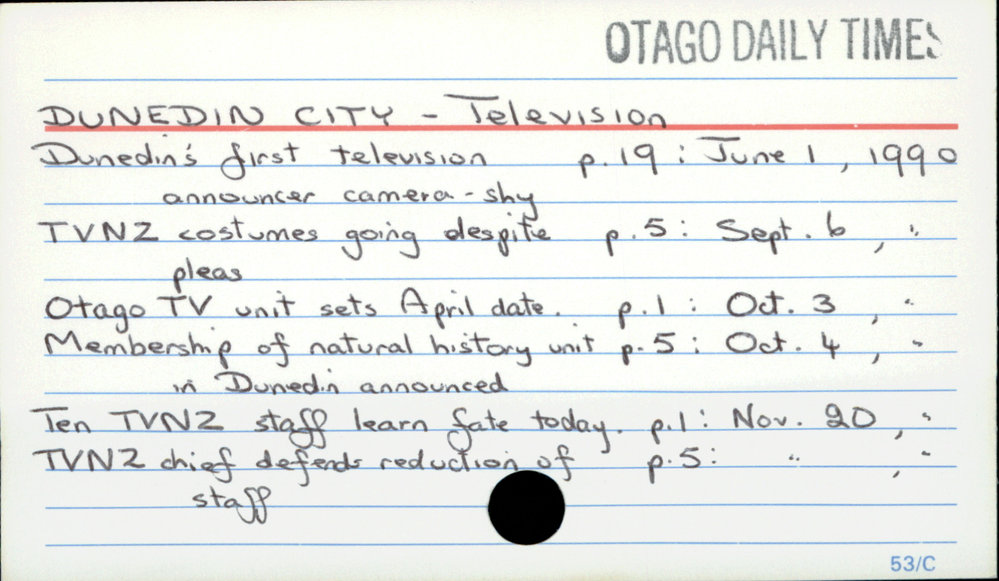 OTAGO DAILY TIMES
DUNEDIN CITY - Television
Dunedin's first television p.19 : June 1, 1990
announcer camera-shy
TVNZ costumes going despite p.5 : Sept. 6, "
pleas
Otago TV unit sets April date. p.1 : Oct. 3, "
Membership of natural history unit p.5 : Oct. 4, "
in Dunedin announced
Ten TVNZ staff learn fate today. p.1 : Nov. 20, "
TVNZ chief defends reduction of p.5 : " , "
staff
53/C